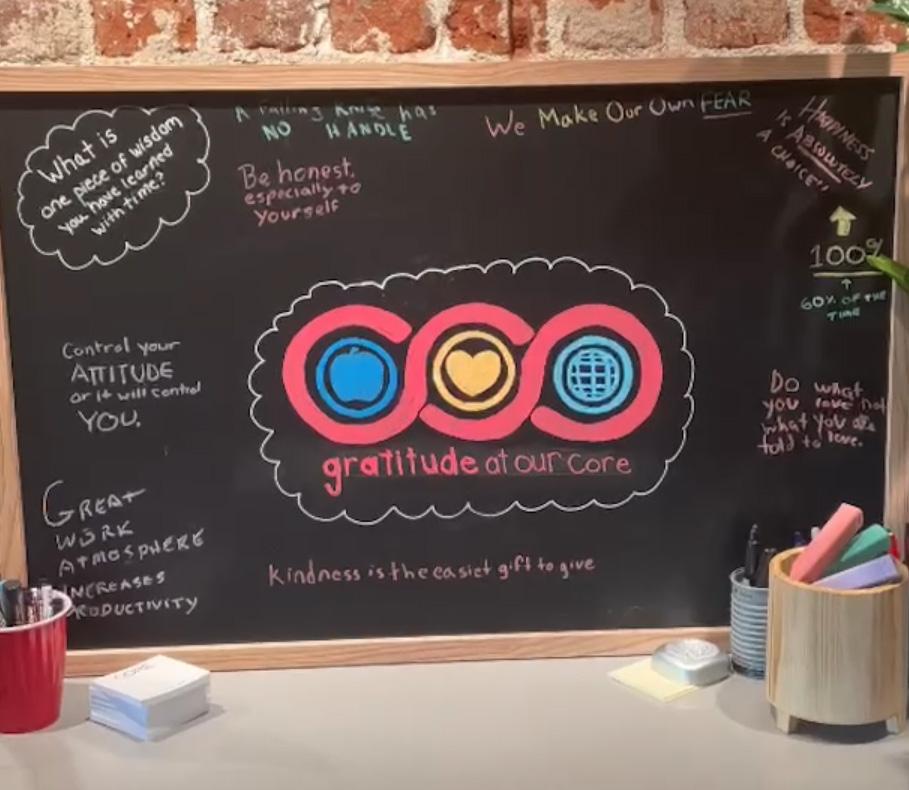 What is
one piece of wisdom
you have learned
with time?
A falling knife has
NO HANDLE
Be honest,
especially to
yourself
We Make Our Own FEAR
HAPPINESS
IS ABSOLUTELY
A CHOICE!!
100%
60% OF THE
TIME
Control your
ATTITUDE
or it will control
YOU.
gratitude at our core
Do what
you love not
what you are
told to love.
GREAT
WORK
ATMOSPHERE
INCREASES
PRODUCTIVITY
Kindness is the easiet gift to give
CORE